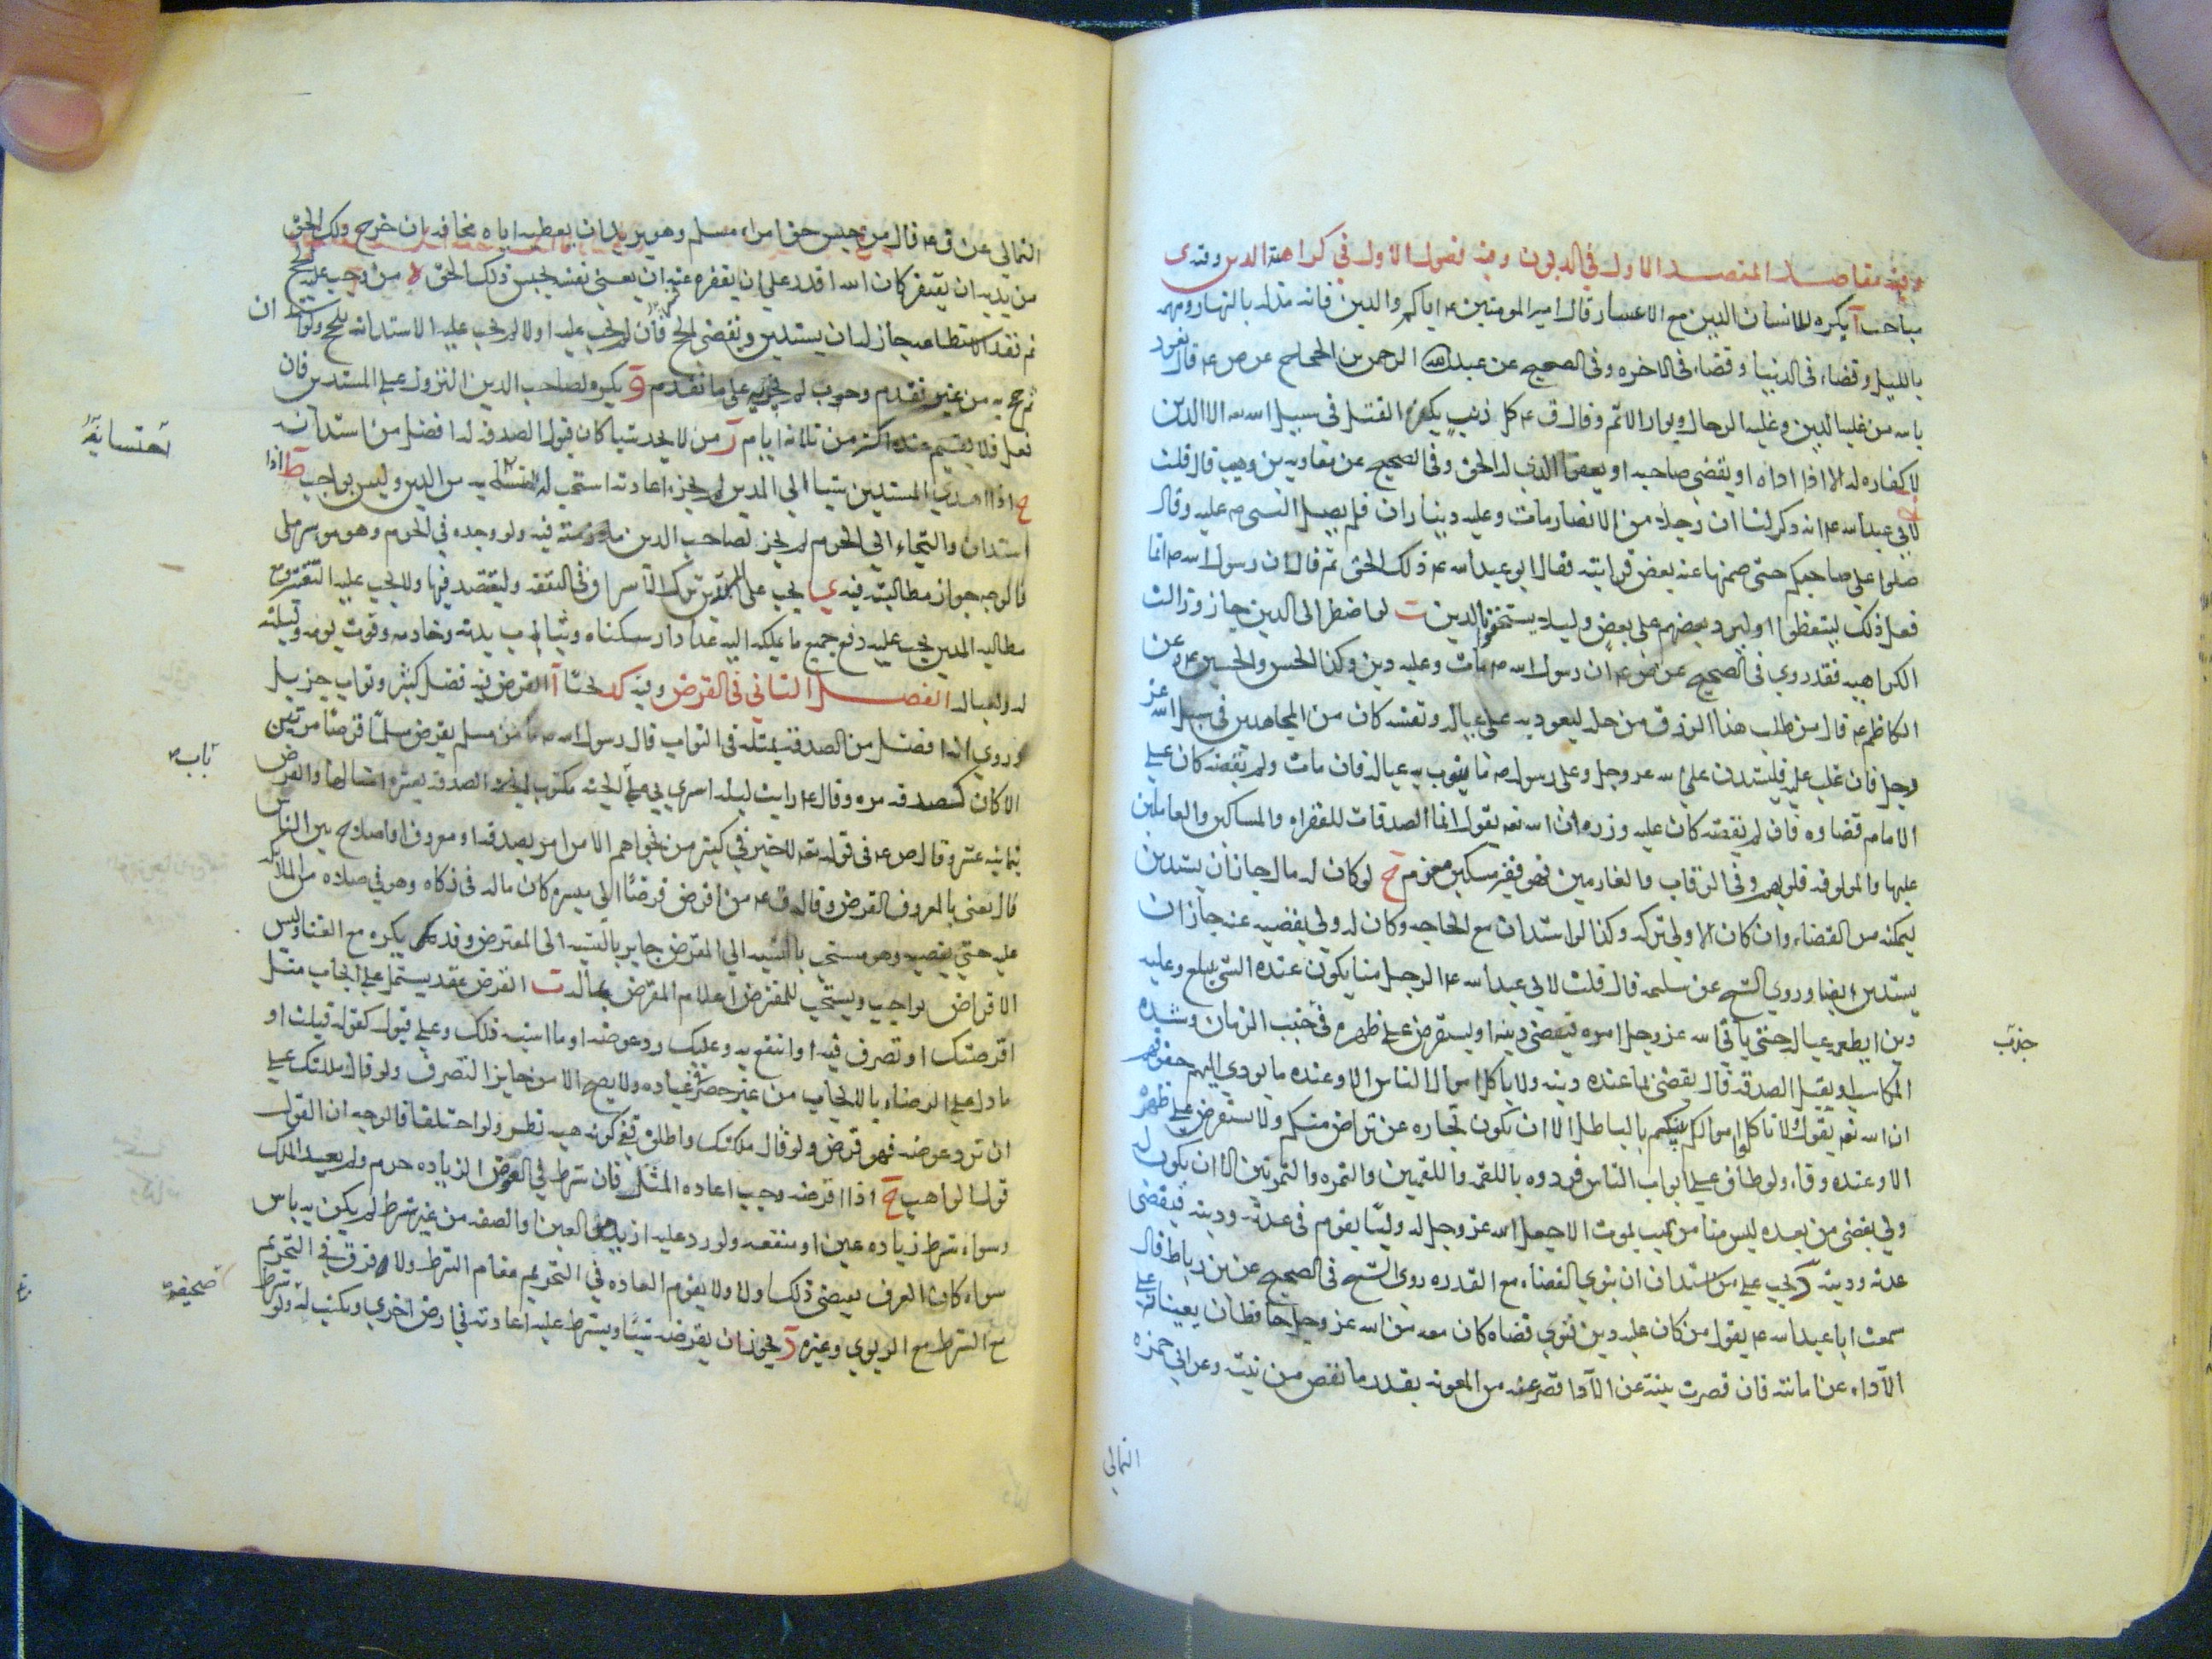 وفيه مقاصد المقصد الاول في الديون وفيه فصول الاول في كراهية الدين وفيه ى
مباحث آ يكره للانسان الدين مع الاعسار قال امير المومنين ع اياكم والدين فانه مذله بالنهار ومهمه
بالليل وقضاء في الدنيا وقضاء في الاخره وفي الصحيح عن عبد الرحمن بن الحجاج عن ص ع قال نعوذ
بالله من غلبه الدين وغلبه الرجال وبوار الايم وقال ق ع كل ذنب يكفره القتل في سبيل الله الا الدين
لا كفاره له الا اداه او يقضي صاحبه او يعفو الذي له الحق وفي الصحيح عن معاويه بن وهب قال قلت
لابي عبد الله ع انه ذكر لنا ان رجلا من الانصار مات وعليه ديناران فلم يصل النبي ص عليه وقال
صلوا على صاحبكم حتى ضمنها عنه بعض قرابته فقال ابو عبد الله ع ذلك الحق ثم قال ان رسول الله ص انما
فعل ذلك ليتعظوا وليرد بعضهم على بعض وليلا يستخفوا بالدين ب لو اضطر الى الدين جاز وزالت
الكراهيه فقد روي في الصحيح عن ص ع ان رسول الله ص مات وعليه دين وكذا الحسن والحسين ع وعن
الكاظم ع قال من طلب هذا الرزق من حله ليعود به على عياله ونفسه كان من المجاهدين في سبيل الله عز
وجل فان غلب عليه فليستدن على الله عز وجل وعلى رسوله ص ما يقوت به عياله فان مات ولم يقضه كان على
الامام قضاوه فان لم يقضه كان عليه وزره ان الله تعه يقول انما الصدقات للفقراء والمساكين والعاملين
عليها والمولفه قلوبهم وفي الرقاب والغارمين فهو فقير مسكين مغرم ج لو كان له مال جاز ان يستدين
ليمكنه من القضاء وان كان الاولى تركه وكذا لو استدان مع الحاجه وكان له ولي يقضيه عنه جاز ان
يستدين ايضا وروي الشيخ عن سلمه قال قلت لابي عبد الله ع الرجل منا يكون عنده الشي يتبلغ وعليه
دين ايطعمه عياله حتى ياتي الله عز وجل امره فيقضي دينه او يستقرض على ظهره في خبث الزمان وشده
المكاسب او يقبل الصدقه قال يقضي بما عنده دينه ولا ياكل اموال الناس الا وعنده ما يودي اليهم حقوقهم
ان الله تعه يقول ولا تاكلوا اموالكم بينكم بالباطل الا ان تكون تجاره عن تراض منكم ولا يستقرض على ظهره
الا وعنده وفاء ولو طاف على ابواب الناس فردوه باللقمه واللقمتين والتمره والتمرتين الا ان يكون له
ولي يقضي من بعده ليس منا من ميت يموت الا جعل الله عز وجل له وليا يقوم في عدته ودينه فيقضي
عدته ودينه د يجب على من استدان ان ينوي القضاء مع القدره روى الشيخ في الصحيح عن بن رباط قال
سمعت ابا عبد الله ع يقول من كان عليه دين فنوى قضاه كان معه من الله عز وجل حافظان يعينانه على
الاداء عن امانته فان قصرت نيته عن الادا قصر عنه من المعونه بقدر ما نقص من نيته وعن ابي حمزه
الثمالي
الثمالي عن ق ع قال من حبس حق امراء مسلم وهو يريد ان يعطيه اياه مخافه ان خرج ذلك الحق
من يديه ان يفتقر كان الله اقدر على ان يفقره منه ان يغني نفسه بحبس ذلك الحق ه من وجب عليه الحج
ثم فقد الاستطاعه جاز له ان يستدين ويقضي الحج فان لم يجب عليه اولا لم يجب عليه الاستدانه للحج ولو استدان
ثم حج به من غير تقدم وجوب لم يجزيه على ما تقدم و يكره لصاحب الدين النزول على المستدين فان
فعل فلا يقيم عنده اكثر من ثلاثه ايام ز من لا يجد شيا كان قبول الصدقه له افضل من استدانه
ح اذا اهدى المستدين شيا الى المدين لم يجزء اعادته استحب له احتسابه من الدين وليس بواجب ط اذا
استدان والتجاء الى الحرم لم يجز لصاحب الدين ملازمته فيه ولو وجده في الحرم وهو موسر ملي
فالوجه جواز مطالبته فيه ى يجب على المدين ترك الاسراف في النفقه وليقتصد فيها ولا يجب عليه التقتير ومع
مطالبه المدين يجب عليه دفع جميع ما يملكه اليه عدا دار سكناه وثياب بدنه وخادمه وقوت يومه وليلته
له ولعياله الفصل الثاني في القرض وفيه كد بحثا آ القرض فيه فضل كثير وثواب جزيل
وروي انه افضل من الصدقه بمثله في الثواب قال رسول الله ص ما من مسلم يقرض مسلما قرضا مرتين
الا كان كصدقه مره وقال ع رايت ليله اسري بي على باب الجنه مكتوب الصدقه بعشره امثالها والقرض
بثمانيه عشر وقال ص ع في قوله تعه لا خير في كثير من نجواهم الا من امر بصدقه او معروف او اصلاح بين الناس
قال يعني بالمعروف القرض وقال ق ع من اقرض قرضا الى ميسره كان ماله في زكاه وهو في صلاه من الملائكه
عليه حتى يقضيه وهو مستحب بالنسبه الى المقرض جايز بالنسبه الى المقترض وقد يكره مع الغنا وليس
الاقراض بواجب ويستحب للمقترض اعلام المقرض بحاله ب القرض عقد يشتمل على ايجاب مثل
اقرضتك او تصرف فيه او انتفع به وعليك رد عوضه او ما اشبه ذلك وعلى قبول كقوله قبلت او
ما دل على الرضاء بالايجاب من غير حصر في عباره ولا يصح الا من جايز التصرف ولو قال ملكتك على
ان ترد عوضه فهو قرض ولو قال ملكتك واطلق ففي كونه هبه نظر ولو اختلفا فالوجه ان القول
قول الواهب ج اذا اقرضه وجب اعاده المثل فان شرط في القرض الزياده حرم ولم يفد الملك
وسواء شرط زياده عين او منفعه ولو رد عليه ازيد في العين او الصفه من غير شرط لم يكن به باس
سواء كان العرف يقتضي ذلك اولا ولا يقوم العاده في التحريم مقام الشرط ولا فرق في التحريم
مع الشرط مع الربوي وغيره د يجوز ان يقرضه شيا ويشترط عليه اعادته في ارض اخرى ويكتب له ولو شرط
احتسابه
باب
صحيحه